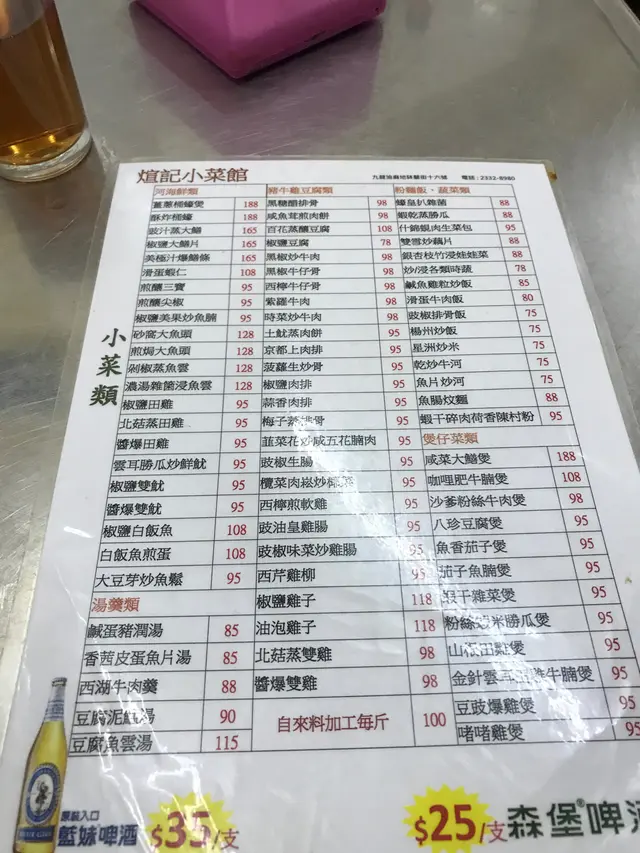 煊記小菜館
電話：2332-8980
小菜類
河海鮮類
薑蔥桶蠔煲 188
酥炸桶蠔 188
豉汁蒸大鱔 165
椒鹽大鱔片 165
美極汁爆鱔條 165
滑蛋蝦仁 108
煎釀三寶 95
煎釀尖椒 95
椒鹽美果炒魚腩 95
砂窩大魚頭 128
煎焗大魚頭 128
剁椒蒸魚雲 128
濃湯雜菌浸魚雲 128
椒鹽田雞 95
北菇蒸田雞 95
醬爆田雞 95
雲耳勝瓜炒鮮魷 95
椒鹽雙魷 95
醬爆雙魷 95
椒鹽白飯魚 108
白飯魚煎蛋 108
大豆芽炒魚鬆 95
湯羹類
鹹蛋豬潤湯 85
香茜皮蛋魚片湯 85
西湖牛肉羹 88
豆腐泥鯭湯 90
豆腐魚雲湯 115
豬牛雞豆腐類
黑糖醋排骨 98
咸魚茸煎肉餅 98
百花蒸釀豆腐 108
椒鹽豆腐 78
黑椒炒牛肉 98
黑椒牛仔骨 98
西檸牛仔骨 98
紫蘿牛肉 98
時菜炒牛肉 98
土魷蒸肉餅 95
京都上肉排 95
菠蘿生炒骨 95
椒鹽肉排 95
蒜香肉排 95
梅子蒸排骨 95
韮菜花炒咸五花腩肉 95
豉椒生腸 95
欖菜肉崧炒 95
西檸煎軟雞 95
豉油皇雞腸 95
豉椒味菜炒雞腸 95
西芹雞柳 95
椒鹽雞子 118
油泡雞子 118
北菇蒸雙雞 98
醬爆雙雞 98
自來料加工每斤 100
粉麵飯、蔬菜類
蠔皇扒雜菌 88
蝦乾蒸勝瓜 88
什錦焗肉生菜包 95
雙雪炒藕片 88
銀杏枝竹浸娃娃菜 88
炒/浸各類時蔬 78
鹹魚雞粒炒飯 85
滑蛋牛肉飯 80
豉椒排骨飯 75
楊州炒飯 75
星洲炒米 75
乾炒牛河 75
魚片炒河 75
魚腸炆麵 88
蝦干碎肉荷香陳村粉 95
煲仔菜類
咸菜大鱔煲 188
咖哩肥牛腩煲 108
沙爹粉絲牛肉煲 98
八珍豆腐煲 95
魚香茄子煲 95
茄子魚腩煲 95
干雜菜煲 95
粉絲 米勝瓜煲 95
田雞煲 95
金針雲 雞牛腩煲 95
豆豉爆雞煲 95
啫啫雞煲 95
原裝入口
藍妹啤酒 $35/支
$25/支 森堡®啤